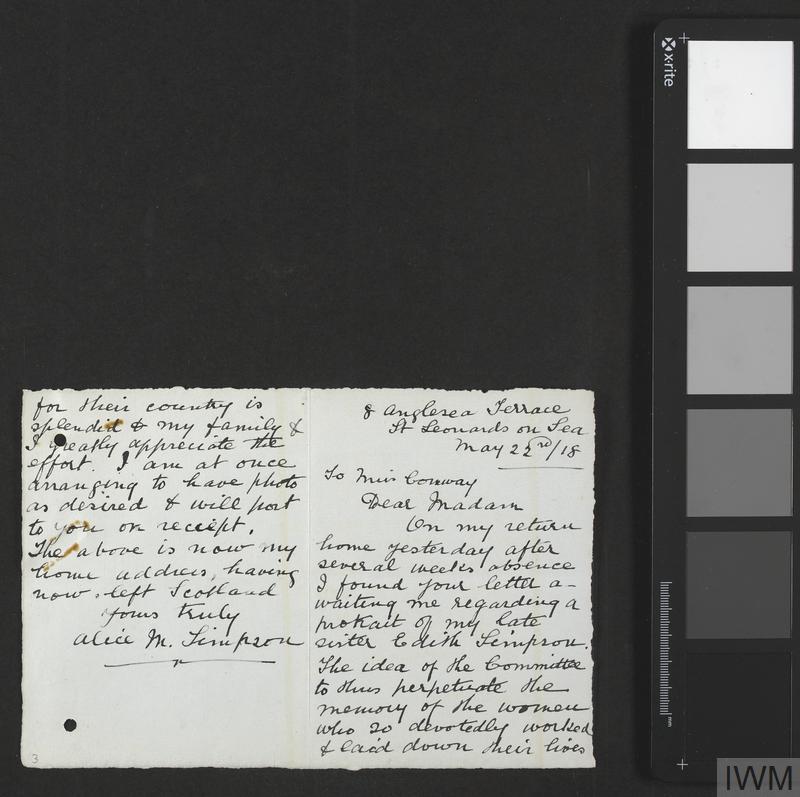 8 Anglesea Terrace
St Leonards on Sea
May 22nd/18
To Miss Conway
Dear Madam
On my return
home yesterday after
several weeks absence
I found your letter a-
waiting me regarding a
portrait of my late
sister Edith Simpson.
The idea of the Committee
to thus perpetuate the
memory of the women
who so devotedly worked
& laid down their lives
for their country is
splendid & my family &
I greatly appreciate the
effort. I am at once
arranging to have photo
as desired & will post
to you on receipt.
The above is now my
home address, having
now left Scotland
Yours truly
Alice M. Simpson
3
x-rite
mm
IWM